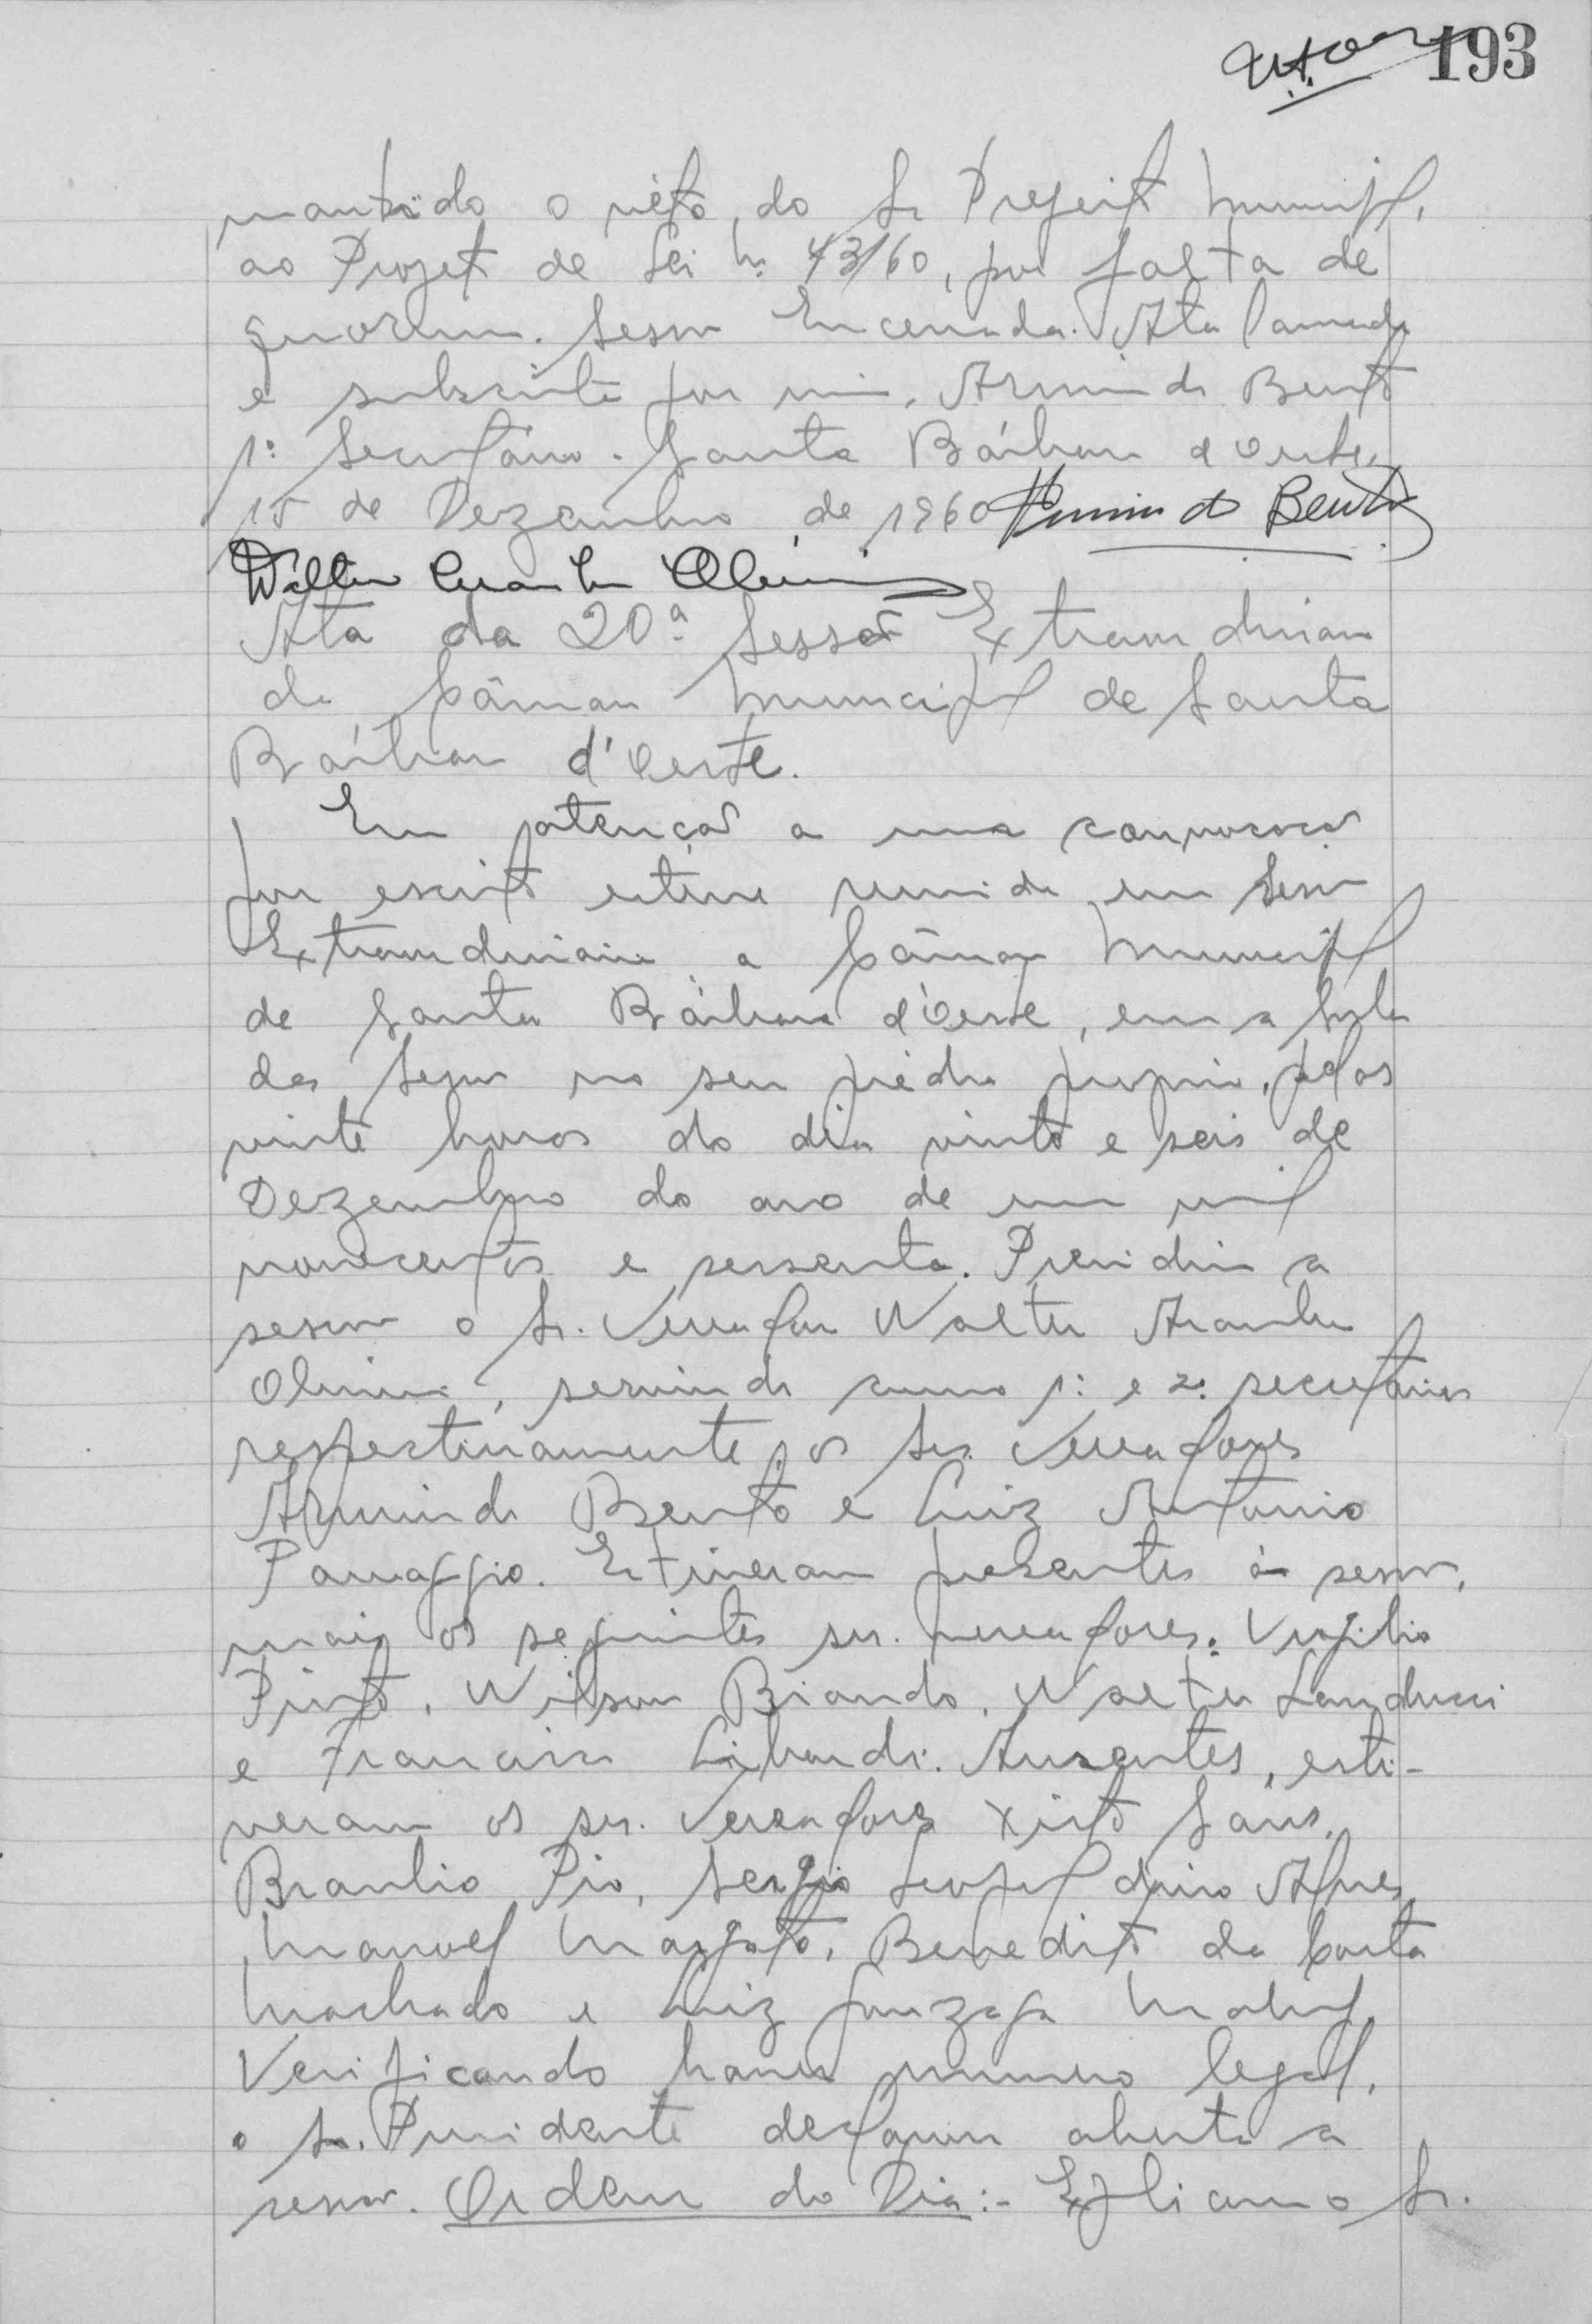 193
mantido o véto do Sr Prefeito Municipal,
ao Projeto de Lei nº 43/60, por falta de
quorum. Sessão Encerrada. Ata lavrada
e subscrita por mim, Armindo Bento
1º Secretário. Santa Bárbara d'Oeste,
15 de Dezembro de 1960 Armindo Bento
Walter
Ata da 20ª Sessão Extraordinária
da Câmara Municipal de Santa
Bárbara d'Oeste.
Em atenção a uma convocação
por escrito esteve reunida em Sessão
Extraordinária a Câmara Municipal
de Santa Bárbara d'Oeste, em a Sala
das Sessões no seu prédio proprio, pelas
vinte horas do dia vinte e seis de
Dezembro do ano de um mil
novecentos e sessenta. Presidiu a
sessão o Sr. Vereador Walter
servindo como 1º e 2º secretários
respectivamente, os Srs. Vereadores
Armindo Bento e Luiz Antonio
Panaggio. Estiveram presentes à sessão,
mais os seguintes srs. vereadores: Virgilio
Pinto, Wilson Biondo, Walter Landucci
e Francisco Libardi. Ausentes, esti-
veram os srs. Vereadores Xisto
Braulio Pio, Sergio Leopoldino Alves,
Manoel Margato, Benedito da Costa
Machado e Luiz Gonzaga
Verificando haver numero legal,
o Sr. Presidente declarou aberta a
sessão. Ordem do Dia:- Explicou o Sr.